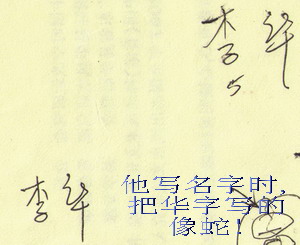 李华
李华
他写名字时,
把华字写的
像蛇!